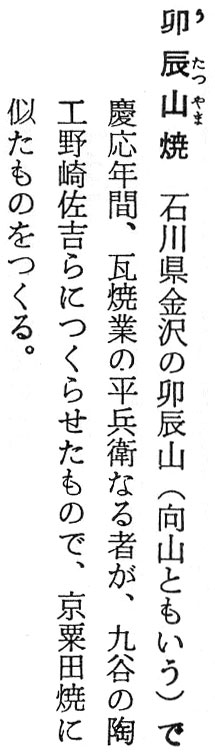 卯辰山焼　石川県金沢の卯辰山（向山ともいう）で
慶応年間、瓦焼業の平兵衛なる者が、九谷の陶
工野崎佐吉らにつくらせたもので、京粟田焼に
似たものをつくる。